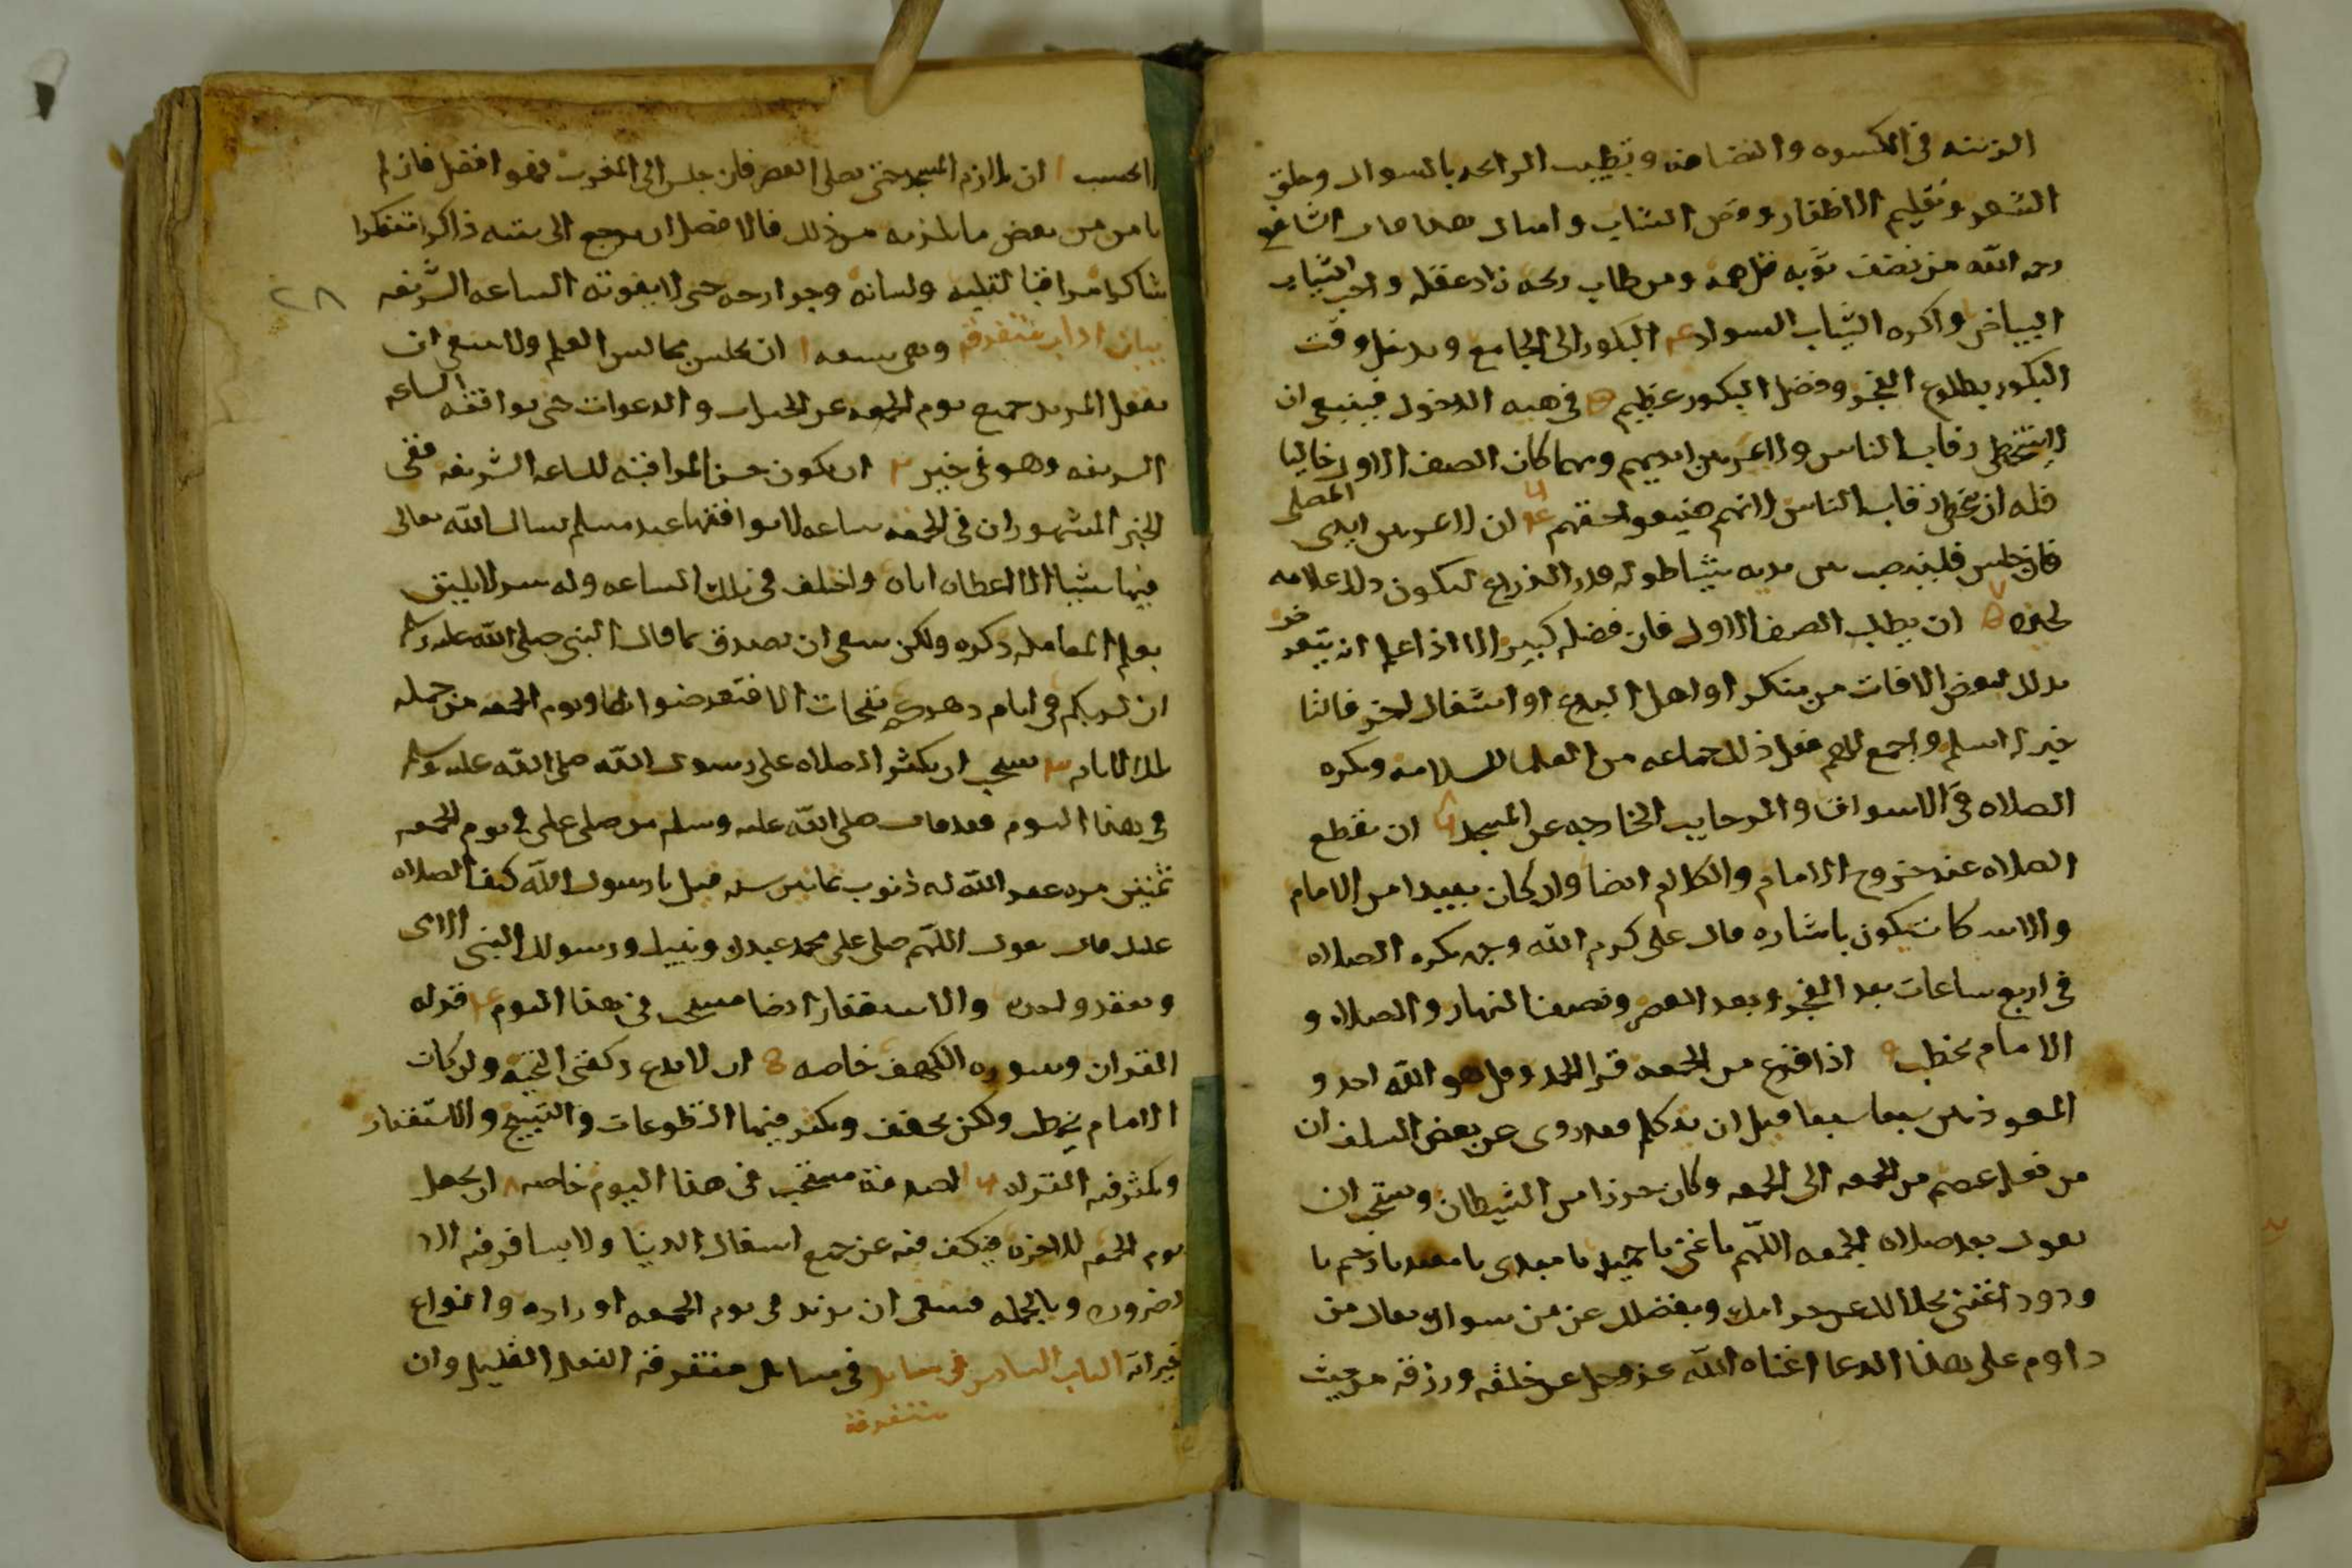 الزينه في الكسوه والنضافه وتطييب الرائحه بالسواك وحلق
الشعر وتقليم الاظفار وقص الشارب وامثال هذا قال الشافعي
رحمه الله من نضف ثوبه قل همه ومن طاب ريحه زاد عقله واحب الثياب
البياض واكره الثياب السواد ٤ البكور الى الجامع ويدخل وقت
البكور بطلوع الفجر وفضل البكور عظيم ٥ في هيه الدخول فينبغي ان
لا يتخطى رقاب الناس ولا يمر بين ايديهم ومهما كان الصف الاول خاليا
فله ان يتخطى رقاب الناس لانهم ضيعوا حقهم ٦ ان لا يمر بين ايدي المصلي
فان جلس فلينصب بين يديه شيئا طوله قدر الذراع ليكون ذلك علامه
لحده ٧ ان يطلب الصف الاول فان فضله كبير الا اذا علم انه يتعرض
بذلك لبعض الافات من منكر او اهل البدع او اشغال اخر فالثا
خير له اسلم واجمع للهم فعل ذلك جماعه من العلما للسلامه ويكره
الصلاه في الاسواق والرحايب الخارجه عن المسجد ٨ ان يقطع
الصلاه عند خروج الامام والكلام ايضا وان كان بعيدا من الامام
والاسكات يكون باشاره قال علي كرم الله وجهه يكره الصلاه
في اربع ساعات بعد الفجر وبعد العصر ونصف النهار والصلاه و
الامام يخطب ٩ اذا فرغ من الجمعه قرا الحمد وقل هو الله احد و
المعوذتين سبعا سبعا قبل ان يتكلم فقد روى عن بعض السلف ان
من فعله عصم من الجمعه الى الجمعه وكان حرزا من الشيطان ويستحب ان
يقول بعد صلاه الجمعه اللهم يا غني يا حميد يا مبدي يا معيد يا رحيم يا
ودود اغنني بحلالك عن حرامك وبفضلك عن من سواك يقال من
داوم على هذا الدعا اغناه الله عز وجل عن خلقه ورزقه من حيث
لا يحتسب ١٠ ان يلازم المسجد حتى يصلي العصر فان جلس الى المغرب فهو افضل فان لم
يامن من بعض ما يلزمه من ذلك فالافضل ان يرجع الى بيته ذاكرا متفكرا
شاكرا مراقبا لقلبه ولسانه وجوارحه حتى لا يفوته الساعه الشريفه
بيان اداب متفرقه وهي سبعه ١ ان يجلس مجالس العلم ولا ينبغي ان
يغفل المريد جميع يوم الجمعه عن الخيرات والدعوات حتى يوافقه الساعه
الشريفه وهو في خير ٢ ان يكون حسن المراقبه للساعه الشريفه ففي
الخبر المشهور ان في الجمعه ساعه لا يوافقها عبد مسلم يسال الله تعالى
فيها شيا الا اعطاه اياه واختلف في تلك الساعه وله سر لا يليق
بعلم المعامله ذكره ولكن ينبغي ان يصدق بما قال النبي صلى الله عليه وسلم
ان لربكم في ايام دهركم نفحات الا فتعرضوا لها ويوم الجمعه من جمله
تلك الايام ٣ يستحب ان يكثر الصلاه على رسول الله صلى الله عليه وسلم
في هذا اليوم فقد قال صلى الله عليه وسلم من صلى علي في يوم الجمعه
ثمنين مره غفر الله له ذنوب ثمانين سنه قيل يا رسول الله كيف الصلاه
عليك قال يقول اللهم صلي على محمد عبدك ونبيك ورسولك النبي الامي
ويعقد واحده والاستغفار ايضا مستحب في هذا اليوم ٤ قراه
القران وسوره الكهف خاصه ٥ ان لا يدع ركعتي التحيه ولو كان
الامام يخطب ولكن يخفف ويكثر فيها التطوعات والتسبيح والاستغفار
ويكثر فيه القراه ٦ الصدقه مستحب في هذا اليوم خاصه ٧ ان يجعل
يوم الجمعه للاخره فيكف فيه عن جميع اشغال الدنيا ولا يسافر فيه الا
لضروره وبالجمله فينبغي ان يزيد في يوم الجمعه اوراده وانواع
خيراته الباب السادس في مسايل في مسايل متفرقه الفعل القليل وان
متفرقة
٢٨